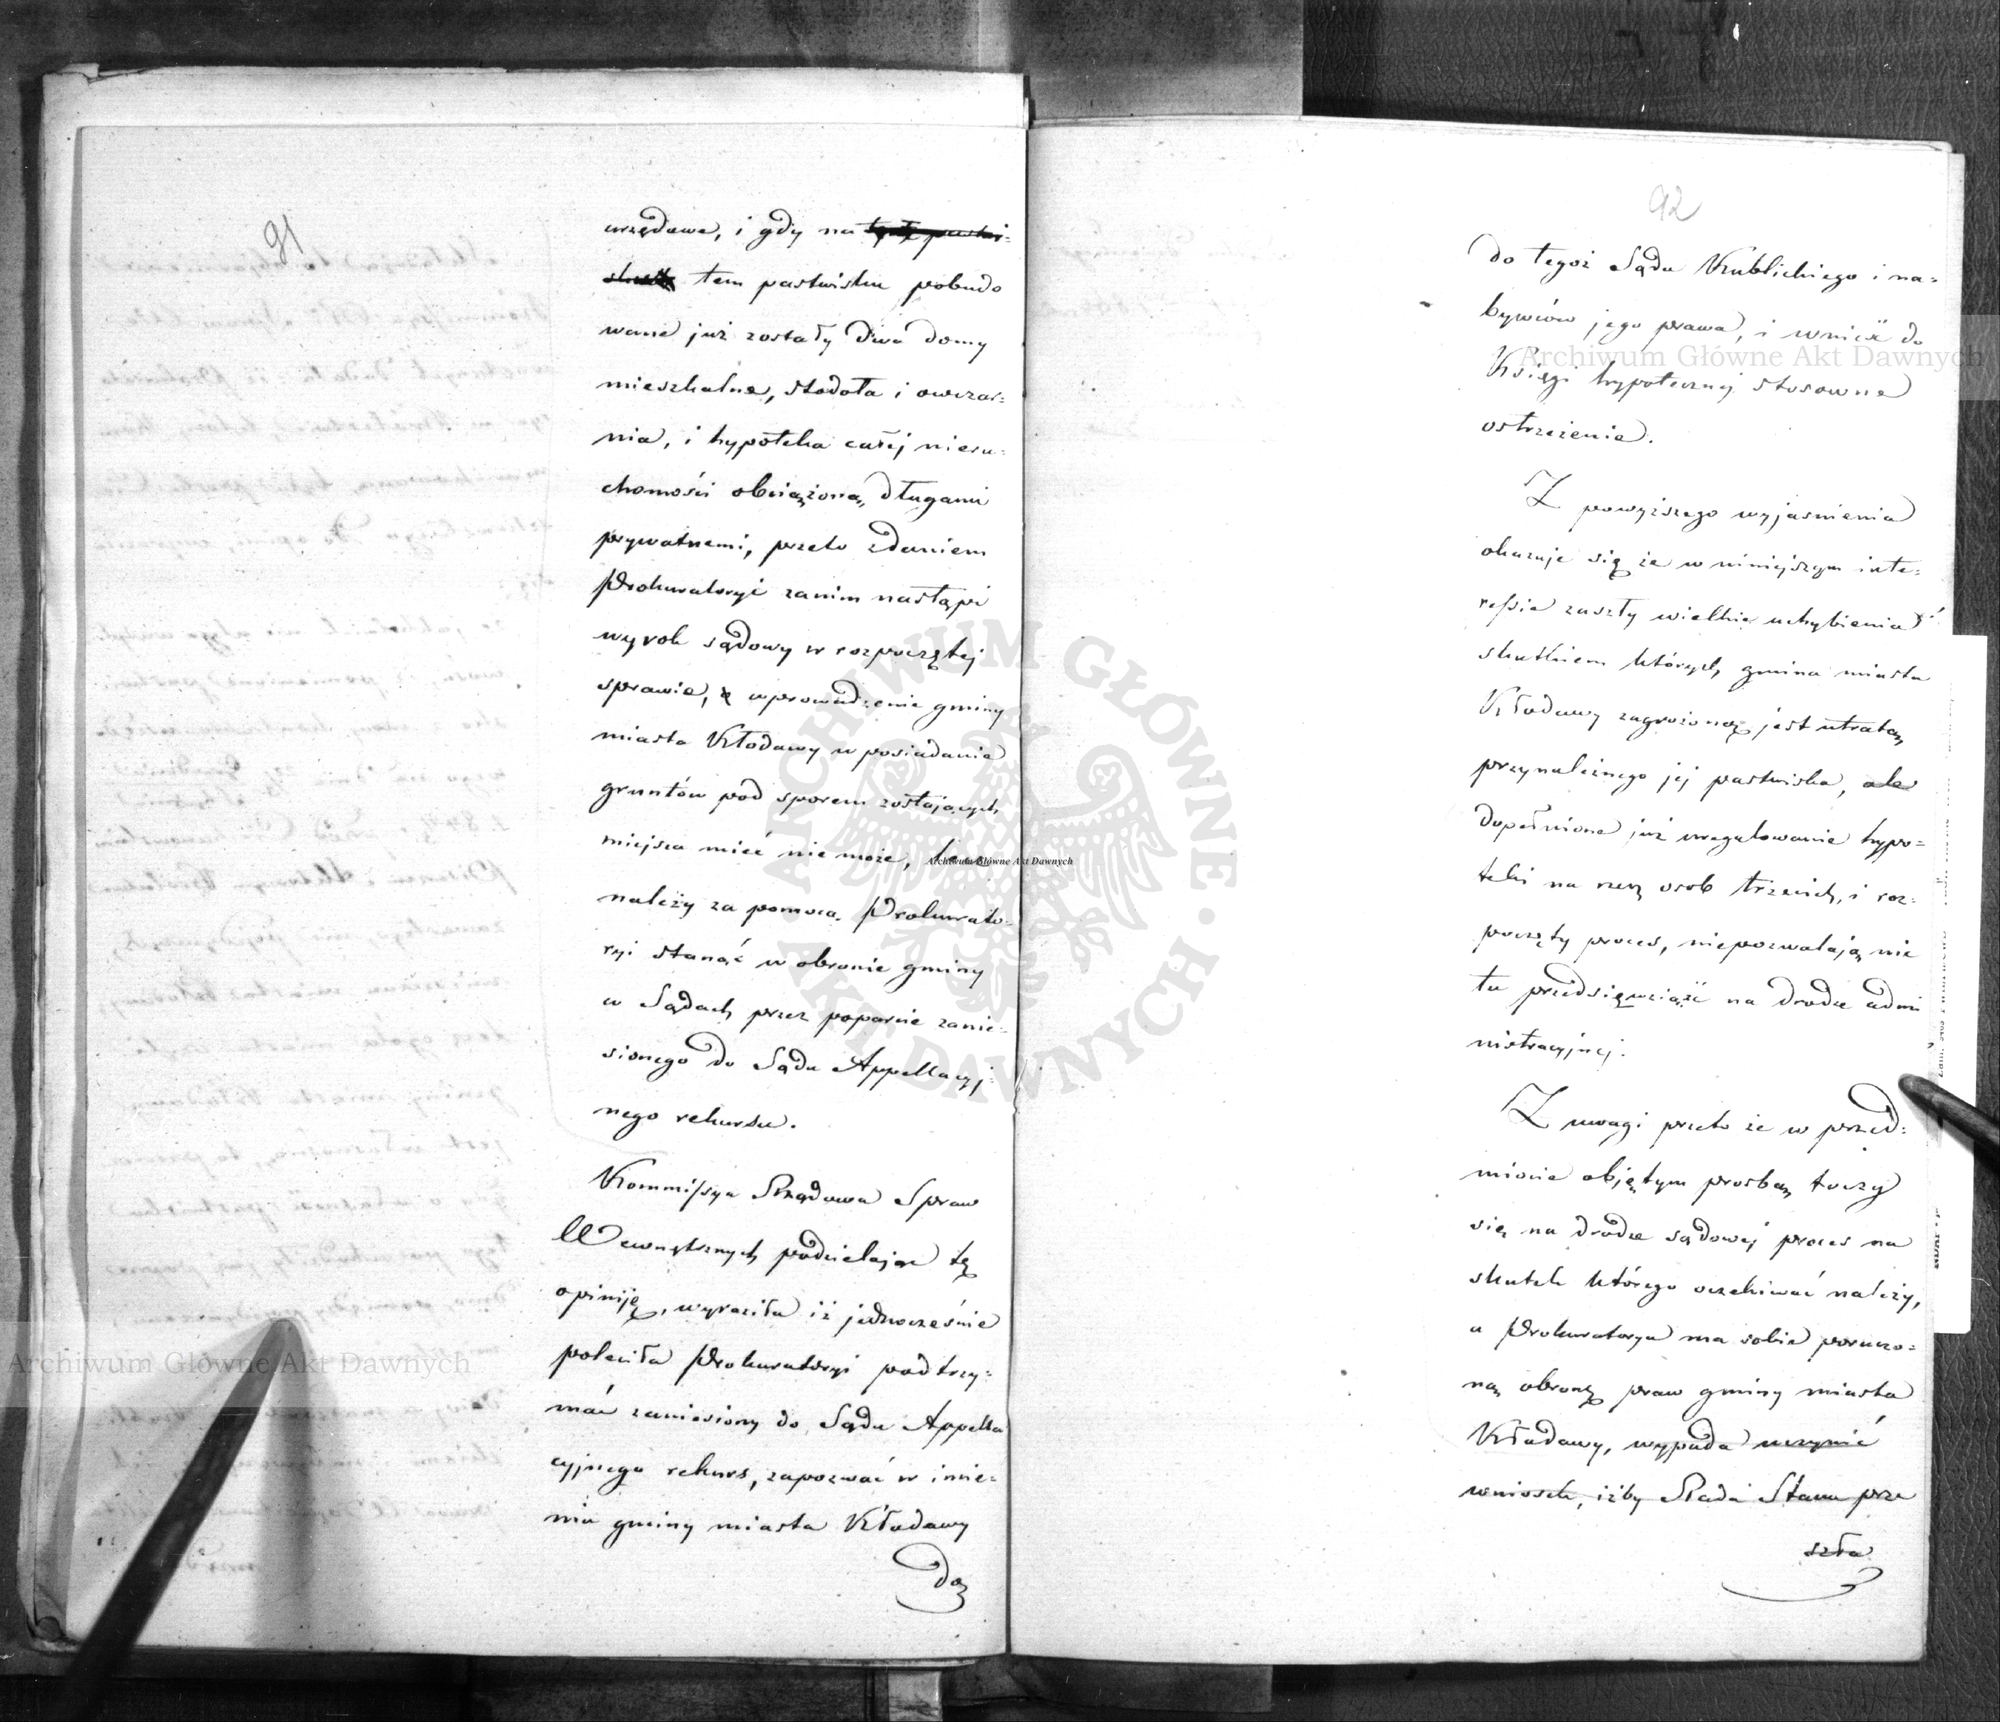 91
urzędowe, i gdy na tychże pastwi-
skach tem pastwisku pobudo
wane już zostały dwa domy
mieszkalne, stodoła i owczar-
nia, i hypoteka całej nieru-
chomości obciążoną długami
prywatnemi, przeto zdaniem
Prokuratoryi zanim nastąpi
wyrok sądowy w rozpoczętej
sprawie, wprowadzenie gminy
miasta Kłodawy w posiadanie
gruntów pod sporem zostających
miejsca mieć nie może, lecz
należy za pomocą Prokurato-
ryi stanąć w obronie gminy
w Sądach przez poparcie zanie-
sionego do Sądu Appellacyj-
nego rekursu.
Kommissya Rządowa Spraw
Wewnętrznych podzielając tę
opiniję, wyraziła iż jednocześnie
poleciła Prokuratoryi podtrzy-
mać zaniesiony do Sądu Appella
cyjnego rekurs, zapozwać w imie-
niu gminy miasta Kłodawy
do
92
do tegoż Sądu Kublickiego i na-
bywców jego prawa, i wnieść do
Księgi hypotecznej stosowne
ostrzeżenie.
Z powyższego wyjaśnienia
okazuje się że w niniejszym inte-
ressie zaszły wielkie uchybienia
skutkiem których gmina miasta
Kłodawy zagrożoną jest utratą
przynależnego jej pastwiska, ale
dopełnione już uregulowanie hypo-
teki na rzecz osób trzecich, i roz-
poczęty proces, niepozwalają nic
tu przedsięwziąść na drodze admi
nistracyjnej.
Z uwagi przeto że w przed-
miocie objętym prośbą toczy
się na drodze sądowej proces na
skutek którego oczekiwać należy,
a Prokuratorya ma sobie poruczo-
ną obronę praw gminy miasta
Kłodawy, wypada uczynić
wniosek, iżby Rada Stanu prze
szła
Archiwum Główne Akt Dawnych
Archiwum Główne Akt Dawnych
Archiwum Główne Akt Dawnych
ARCHIWUM GŁÓWNE
AKT DAWNYCH